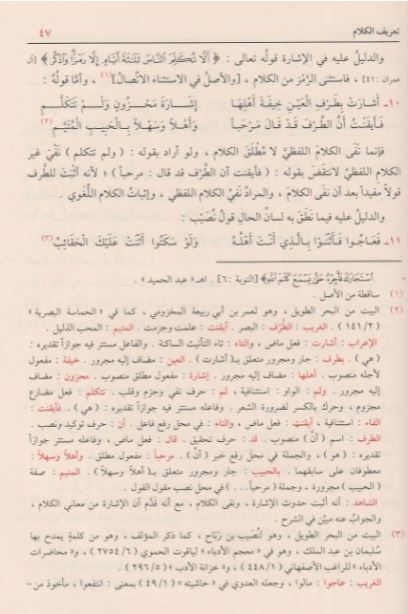 تعريف الكلام
٤٧
والدليلُ عليه في الإشارة قولُه تعالى : ﴿ أَلَّا تُكَلِّمَ النَّاسَ ثَلَاثَةَ أَيَّامٍ إِلَّا رَمْزًا وَاذْكُر ﴾ [آل
عمران : ٤١] ، فاستثنى الرَّمْزَ من الكلام ، [والأصلُ في الاستثناء الاتِّصالُ](١) ، وأمَّا قولُهُ :
١٠- أَشَارَتْ بِطَرْفِ الْعَيْنِ خِيفَةَ أَهْلِهَا إِشَارَةَ مَحْزُونٍ وَلَمْ تَتَكَلَّمِ
فَأَيْقَنْتُ أَنَّ الطَّرْفَ قَدْ قَالَ مَرْحَباً وَأَهْلاً وَسَهْلاً بِالْحَبِيبِ الْمُتَيَّمِ(٢)
فإنما نَفَى الكلامَ اللفظيَّ لا مُطْلَقَ الكلام ، ولو أراد بقوله : ( ولم تتكلم ) نَفْيَ غير
الكلام اللفظي لانتقضَ بقوله : ( فأيقنت أن الطَّرف قد قال : مرحباً ) ؛ لأنه أثبَتَ للطَّرف
قولاً مفيداً بعد أن نفى الكلامَ ، والمرادُ نَفْيُ الكلام اللفظي ، وإثباتُ الكلام اللُّغوي .
والدليل عليه فيما نَطَقَ به لسانُ الحال قولُ نُصَيْب :
١١- فَعَاجُوا فَأَثْنَوْا بِالَّذِي أَنْتَ أَهْلُهُ وَلَوْ سَكَتُوا أَثْنَتْ عَلَيْكَ الْحَقَائِبُ(٣)
اسْتَجَارَكَ فَأَجِرْهُ حَتَّى يَسْمَعَ كَلَامَ اللَّهِ﴾ [التوبة : ٦] . اهـ« عبد الحميد » .
(١) ساقطة من الأصل .
(٢) البيت من البحر الطويل ، وهو لعمر بن أبي ربيعة المخزومي ، كما في « الحماسة البصرية »
( ١٤١/٢ ) . الغريب : الطَّرْف : البصر . أيقنت : علمت وجزمت . المتيم : المحب الذليل .
الإعراب : أشارت : فعل ماض ، والتاء : تاء التأنيث الساكنة . والفاعل مستتر فيه جوازاً تقديره :
( هي ) . بطرف : جار ومجرور متعلق بـ( أشارت ) . العين : مضاف إليه مجرور . خيفة : مفعول
لأجله منصوب . أهلها : مضاف إليه مجرور . إشارة : مفعول مطلق منصوب . محزون : مضاف
إليه مجرور . ولم : الواو : استئنافية ، لم : حرف نفي وجزم وقلب . تتكلم : فعل مضارع
مجزوم ، وحرك بالكسر لضرورة الشعر . وفاعله مستتر فيه جوازاً تقديره : ( هي ) . فأيقنت :
الفاء : استئنافية ، أيقنت : فعل ماض ، والتاء : في محل رفع فاعل . أن : حرف توكيد ونصب .
الطرف : اسم ( أنَّ ) منصوب . قد : حرف تحقيق . قال : فعل ماض ، وفاعله مستتر جوازاً
تقديره : ( هو ) ، والجملة في محل رفع خبر ( أنَّ ) . مرحباً : مفعول مطلق . وأهلاً وسهلاً :
معطوفان على سابقهما . بالحبيب : جار ومجرور متعلق بـ( أهلاً وسهلاً ) . المتيم : صفة
( الحبيب ) مجرورة ، وجملة ( مرحباً . . . ) في محل نصب مقول القول .
الشاهد : أنه أثبت حدوث الإشارة ، ونفى الكلام ، مع أنه قدَّم أن الإشارة من معاني الكلام ،
والجواب عنه مبيَّن في الشرح .
(٣) البيت من البحر الطويل ، وهو لنُصَيب بن رَبَاح ، كما ذكر المؤلف ، وهو من كلمةٍ يمدح بها
سُليمان بن عبد الملك ، وهو في « معجم الأدباء » لياقوت الحموي ( ٢٧٥٤/٦ ) ، و« محاضرات
الأدباء » للراغب الأصفهاني ( ٤٤٨/١ ) ، و« خزانة الأدب » ( ٢٩٦/٥ ) .
الغريب : عاجوا : مالوا ، وجعله العدوي في « حاشيته » ( ٤٩/١ ) بمعنى : انتفعوا ، مأخوذ من-